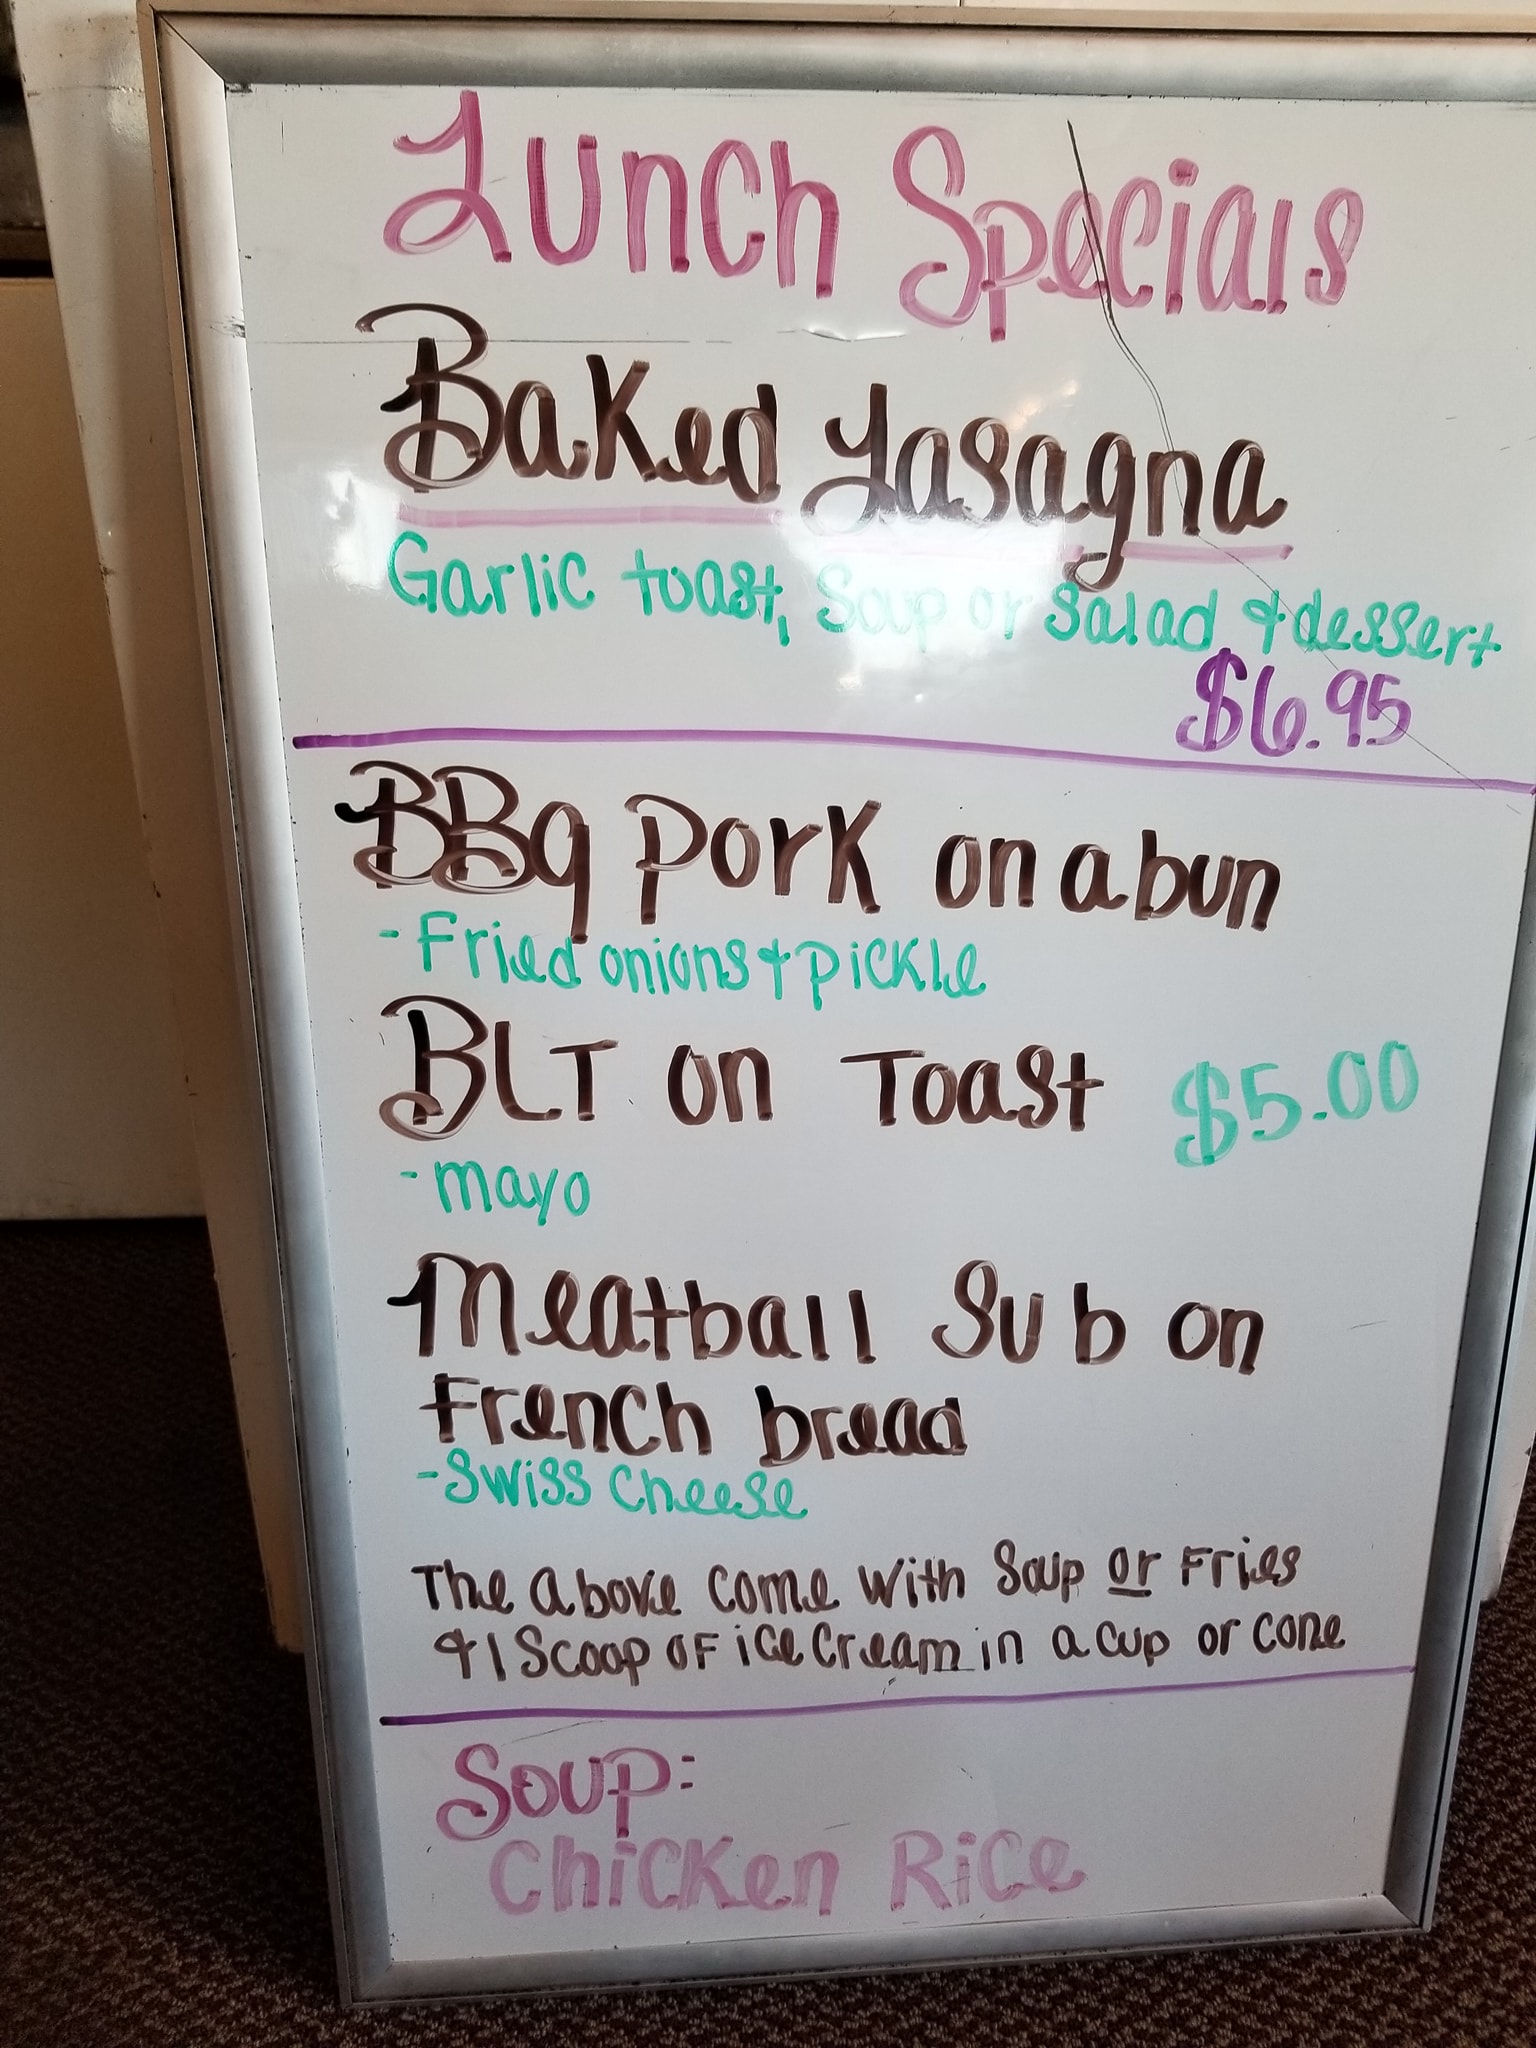 Lunch Specials
Baked Lasagna
Garlic toast, Soup or Salad & dessert
$6.95
BBq Pork on a bun
- Fried onions & pickle
BLT on Toast $5.00
- mayo
Meatball Sub on
French bread
- Swiss Cheese
The above come with Soup or Fries
& 1 Scoop of ice cream in a cup or cone
Soup:
Chicken Rice